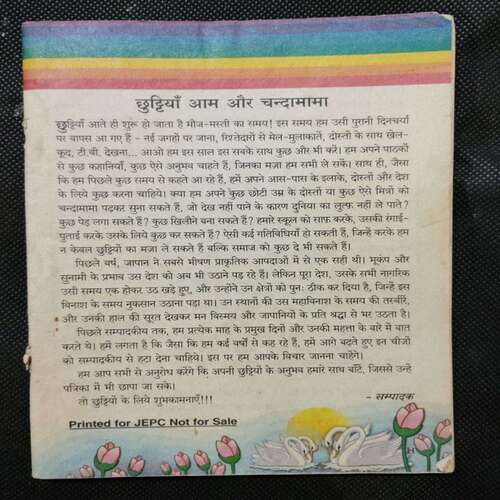 छुट्टियाँ आम और चन्दामामा
छुट्टियाँ आते ही शुरू हो जाता है मौज-मस्ती का समय! इस समय हम उसी पुरानी दिनचर्या
पर वापस आ गए हैं - नई जगहों पर जाना, रिश्तेदारों से मेल-मुलाकातें, दोस्तों के साथ खेल-
कूद, टी.वी. देखना... आओ हम इस साल इस सबके साथ कुछ और भी करें! हम अपने पाठकों
से कुछ कहानियाँ, कुछ ऐसे अनुभव चाहते हैं, जिनका मज़ा हम सभी ले सकें। साथ ही, जैसा
कि हम पिछले कुछ समय से कहते आ रहे हैं, हमें अपने आस-पास के इलाके, दोस्तों और देश
के लिये कुछ करना चाहिये। क्या हम अपने कुछ छोटी उम्र के दोस्तों या कुछ ऐसे मित्रों को
चन्दामामा पढ़कर सुना सकते हैं, जो देख नहीं पाने के कारण दुनिया का लुत्फ़ नहीं ले पाते?
कुछ पेड़ लगा सकते हैं? कुछ खिलौने बना सकते हैं? हमारे स्कूल को साफ़ करके, उसकी रंगाई-
पुताई करके उसके लिये कुछ कर सकते हैं? ऐसी कई गतिविधियाँ हो सकती हैं, जिन्हें करके हम
न केवल छुट्टियों का मज़ा ले सकते हैं बल्कि समाज को कुछ दे भी सकते हैं।
पिछले वर्ष, जापान ने सबसे भीषण प्राकृतिक आपदाओं में से एक सही थी। भूकंप और
सुनामी के प्रभाव उस देश को अब भी उठाने पड़ रहे हैं। लेकिन पूरा देश, उसके सभी नागरिक
उसी समय एक होकर उठ खड़े हुए, और उन्होंने उन क्षेत्रों को पुनः ठीक कर दिया है, जिन्हें इस
विनाश के समय नुकसान उठाना पड़ा था। उन स्थानों की उस महाविनाश के समय की तस्वीरें,
और उनकी हाल की सूरत देखकर मन विस्मय और जापानियों के प्रति श्रद्धा से भर उठता है।
पिछले सम्पादकीय तक, हम प्रत्येक माह के प्रमुख दिनों और उनकी महत्ता के बारे में बात
करते थे। हमें लगता है कि जैसा कि हम कई वर्षों से कह रहे हैं, हमें आगे बढ़ते हुए इन चीजों
को सम्पादकीय से हटा देना चाहिये। इस पर हम आपके विचार जानना चाहेंगे।
हम आप सभी से अनुरोध करेंगे कि अपनी छुट्टियों के अनुभव हमारे साथ बाँटें, जिससे उन्हें
पत्रिका में भी छापा जा सके।
तो छुट्टियों के लिये शुभकामनाएँ!!!
- सम्पादक
Printed for JEPC Not for Sale